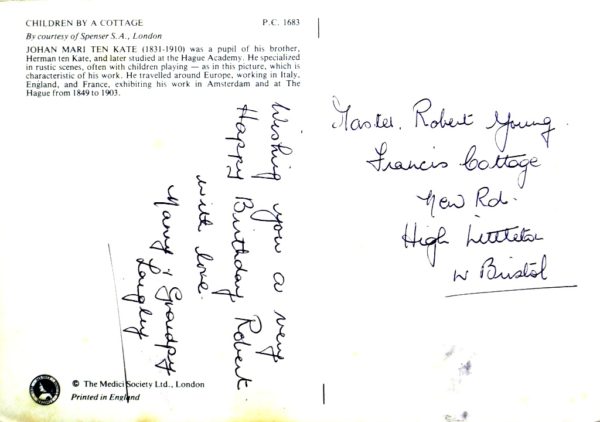 CHILDREN BY A COTTAGE P.C. 1683
By courtesy of Spenser S.A., London
JOHAN MARI TEN KATE (1831-1910) was a pupil of his brother,
Herman ten Kate, and later studied at the Hague Academy. He specialized
in rustic scenes, often with children playing — as in this picture, which is
characteristic of his work. He travelled around Europe, working in Italy,
England, and France, exhibiting his work in Amsterdam and at The
Hague from 1849 to 1903.
Wishing you a very
Happy Birthday Robert.
with love.
Nanny & Grandpy
Langley
Master. Robert Young.
Francis Cottage
New Rd.
High Littleton
Nr Bristol
© The Medici Society Ltd., London
Printed in England